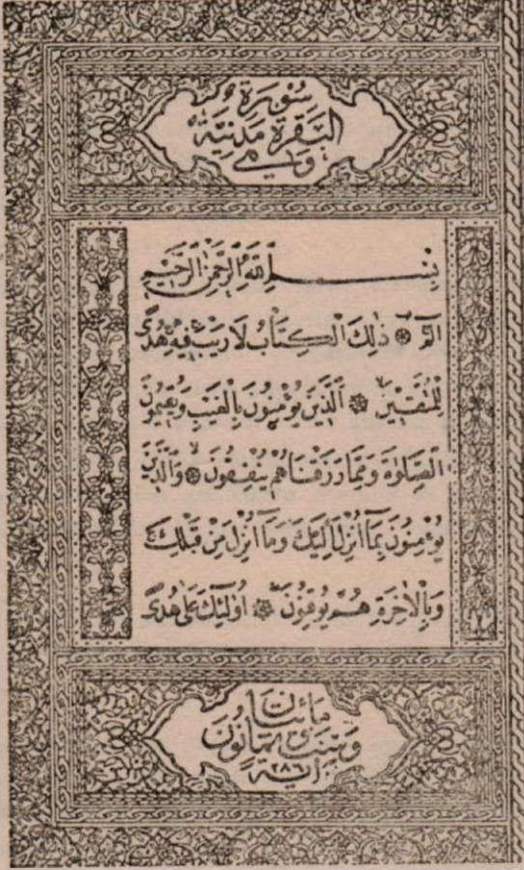 سُورَةُ
البَقَرَةِ مَدَنِيَّةٌ
وَهِيَ
بِسْمِ اللّٰهِ الرَّحْمٰنِ الرَّحِيمِ
الٓمٓ ۞ ذٰلِكَ الْكِتَابُ لَا رَيْبَ فِيهِ هُدًى
لِلْمُتَّقِينَ ۞ اَلَّذِينَ يُؤْمِنُونَ بِالْغَيْبِ وَيُقِيمُونَ
الصَّلٰوةَ وَمِمَّا رَزَقْنَاهُمْ يُنْفِقُونَ ۞ وَالَّذِينَ
يُؤْمِنُونَ بِمَآ اُنْزِلَ اِلَيْكَ وَمَآ اُنْزِلَ مِنْ قَبْلِكَ
وَبِالْاٰخِرَةِ هُمْ يُوقِنُونَ ۞ اُولٰٓئِكَ عَلٰى هُدًى
مِائَتَانِ
وَسِتٌّ وَثَمَانُونَ
آيَة ٢٨٦